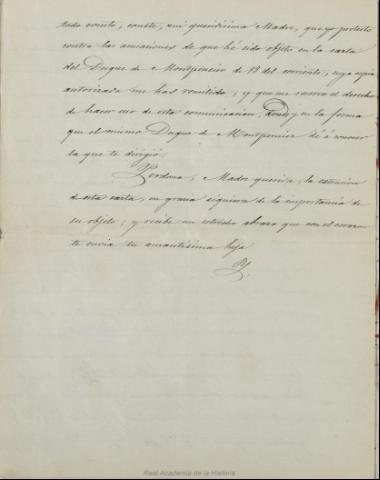 todo evento, conste, mi queridísima Madre, que yo protesto
contra las acusaciones de que hé sido objeto en la carta
del Duque de Montpensier de 19 del corriente, cuya copia
autorizada me has remitido; y que me reservo el derecho
de hacer uso de esta comunicacion, donde y en la forma
que el mismo Duque de Montpensier dé á conocer
la que te dirigió.
Perdona, Madre querida, la estension
de esta carta, en gracia siquiera de la importancia de
su objeto; y recibe un estrecho abrazo que con el corazon
te envia tu amantísima hija
Y.
Real Academia de la Historia